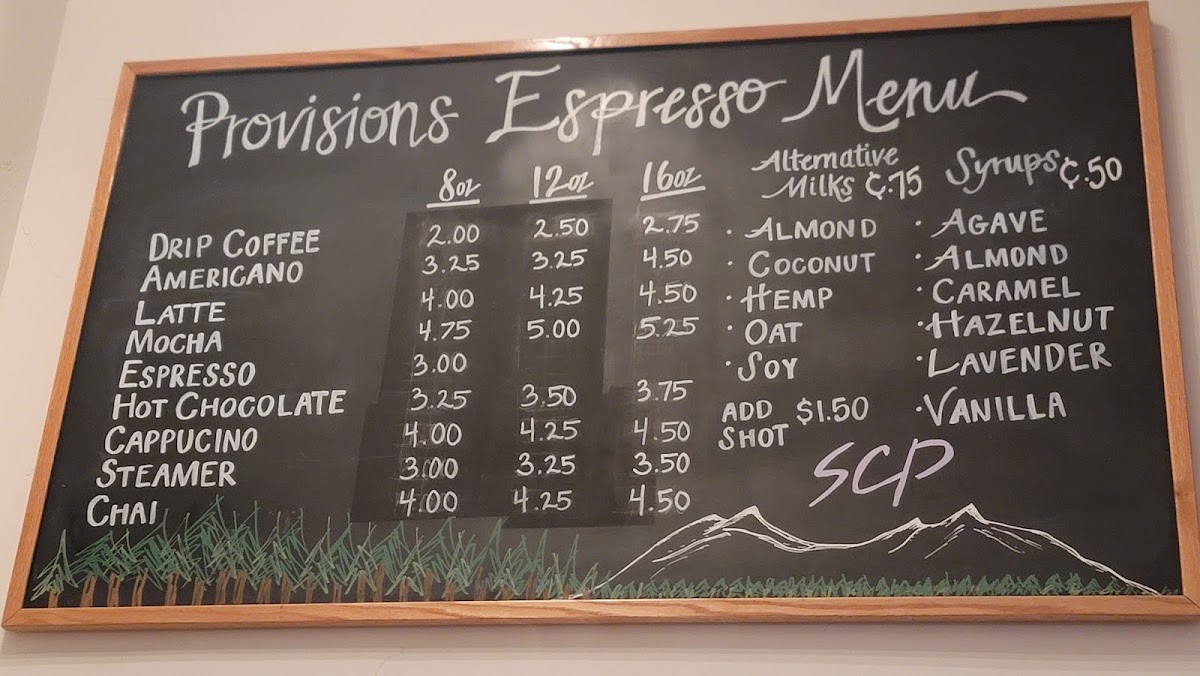 Provisions Espresso Menu
8oz 12oz 16oz
DRIP COFFEE 2.00 2.50 2.75
AMERICANO 3.25 3.25 4.50
LATTE 4.00 4.25 4.50
MOCHA 4.75 5.00 5.25
ESPRESSO 3.00
HOT CHOCOLATE 3.25 3.50 3.75
CAPPUCINO 4.00 4.25 4.50
STEAMER 3.00 3.25 3.50
CHAI 4.00 4.25 4.50
Alternative
Milks ¢.75
· ALMOND
· COCONUT
· HEMP
· OAT
· SOY
ADD SHOT $1.50
Syrups ¢.50
· AGAVE
· ALMOND
· CARAMEL
· HAZELNUT
· LAVENDER
· VANILLA
SCP